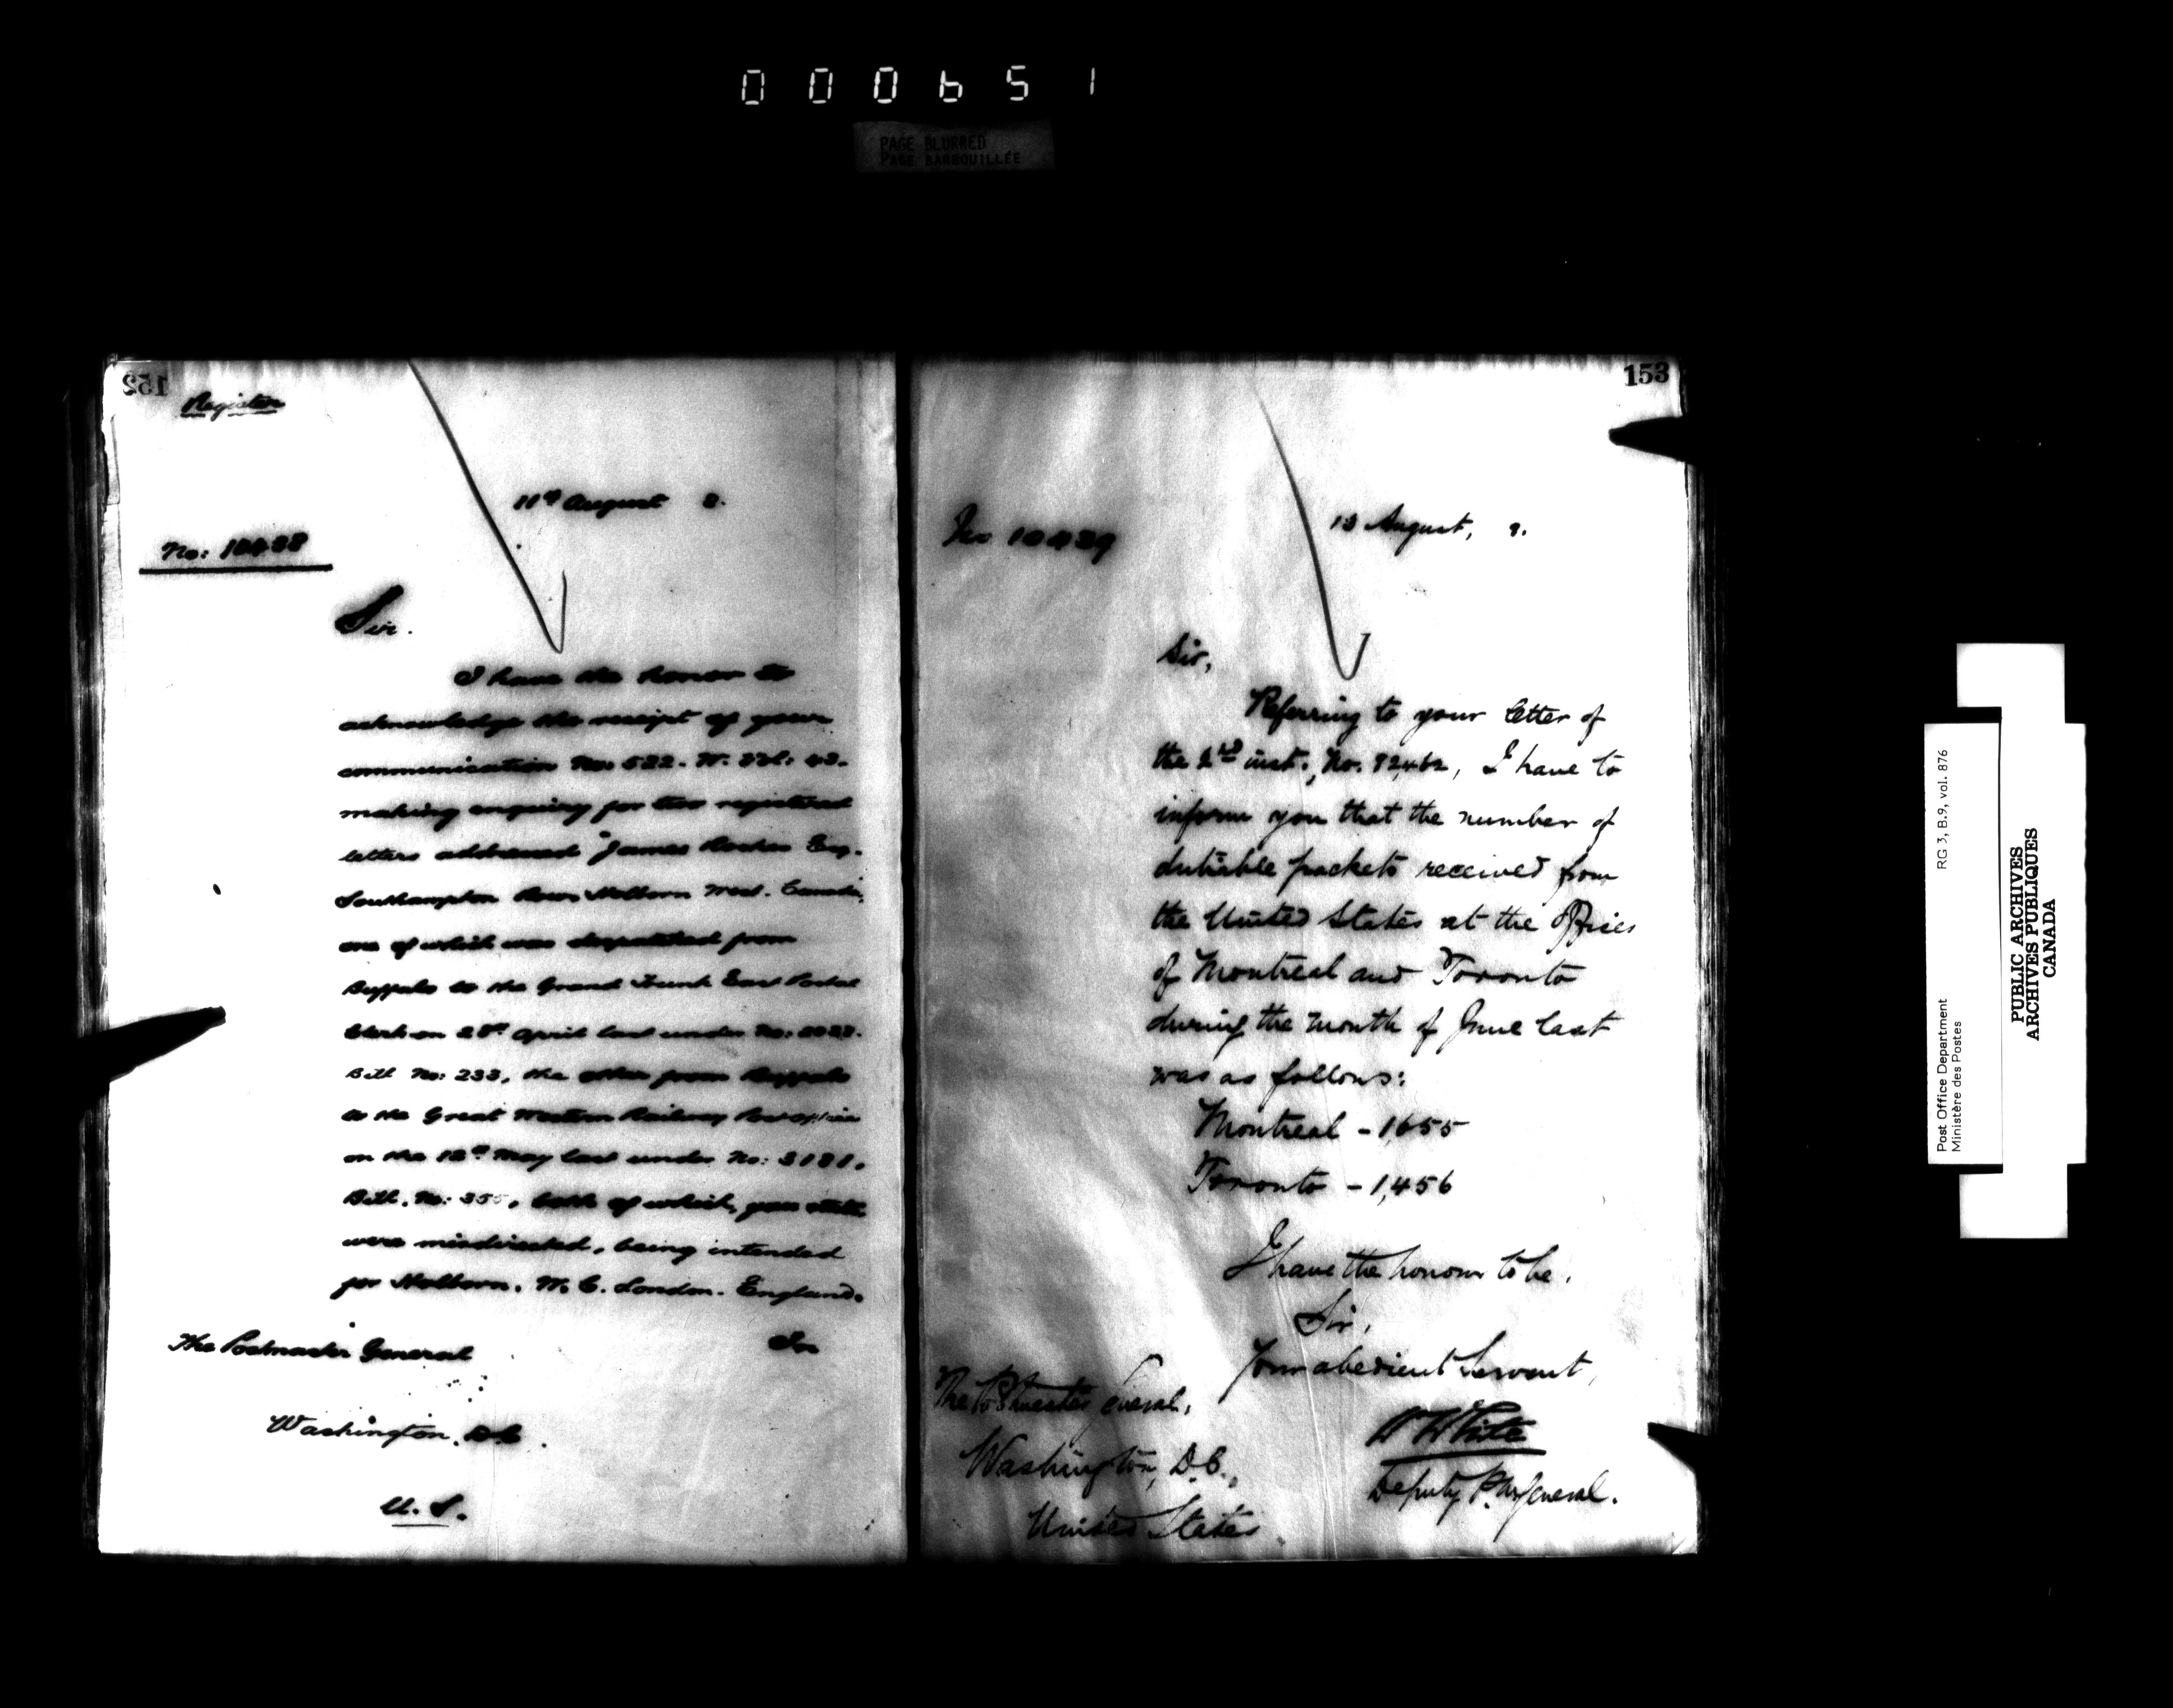 000651
PAGE BLURRED
PAGE BARBOUILLÉE
152
Register
11th August 8.
No: 10438
Sir.
I have the honor to
acknowledge the receipt of your
communication No: 522. W. Vol: 43.
making enquiry for two registered
letters addressed "James Roches Esq.
Southampton Row, Holborn West. Canada,
one of which was despatched from
Buffalo to the Grand Trunk East Postal
Clerk on 28th April last under No: 2028.
Bill No: 233, the other from Buffalo
to the Great Western Railway Post office
on the 12th May last under No: 3181,
Bill. No: 355, both of which, you state
were misdirected, being intended
for Holborn. W. C. London. England.
The Postmaster General
Washington. D.C.
U. S.
153
No 10439
13 August, 8.
Sir,
Referring to your letter of
the 2nd inst., No. 82,462, I have to
inform you that the number of
dutiable packets received from
the United States at the Offices
of Montreal and Toronto
during the month of June last
was as follows:
Montreal - 1,655
Toronto - 1,456
I have the honour to be,
Sir,
Your obedient Servant,
W White
Deputy P. M. General.
The Postmaster General,
Washington, D.C.,
United States
Post Office Department
Ministère des Postes
RG 3, B.9, vol. 876
PUBLIC ARCHIVES
ARCHIVES PUBLIQUES
CANADA